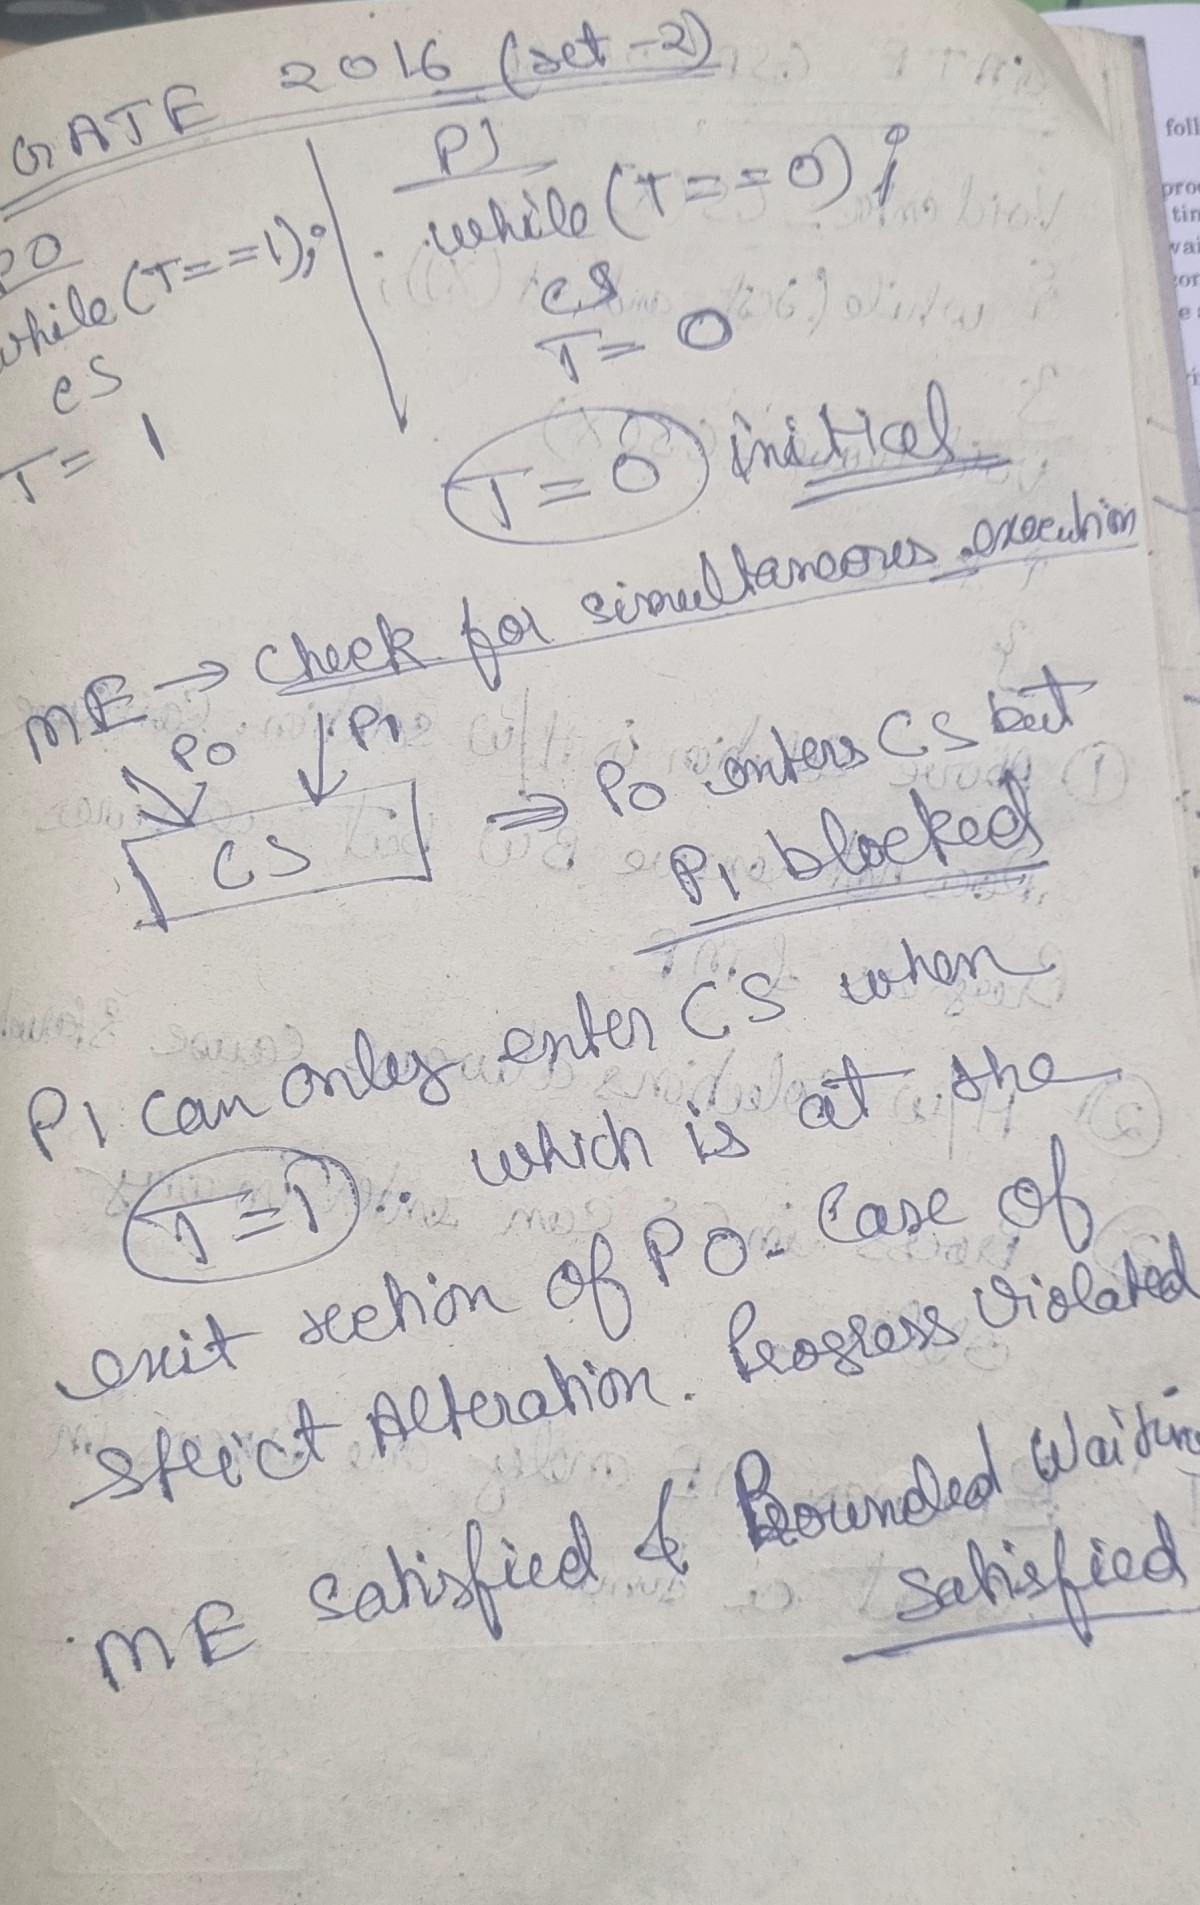 GATE 2016 (set-2)
P0
while(T==1);
CS
T= 1
P1
while(T==0);
CS
T= 0
T=0 initial
ME → Check for simultaneous execution
P0 P1
CS ⇒ P0 enters CS but
P1 blocked
P1 can only enter CS when
T=1. which is at the
exit section of P0. Case of
Strict Alteration. Progress Violated
ME satisfied & Bounded Waiting
satisfied